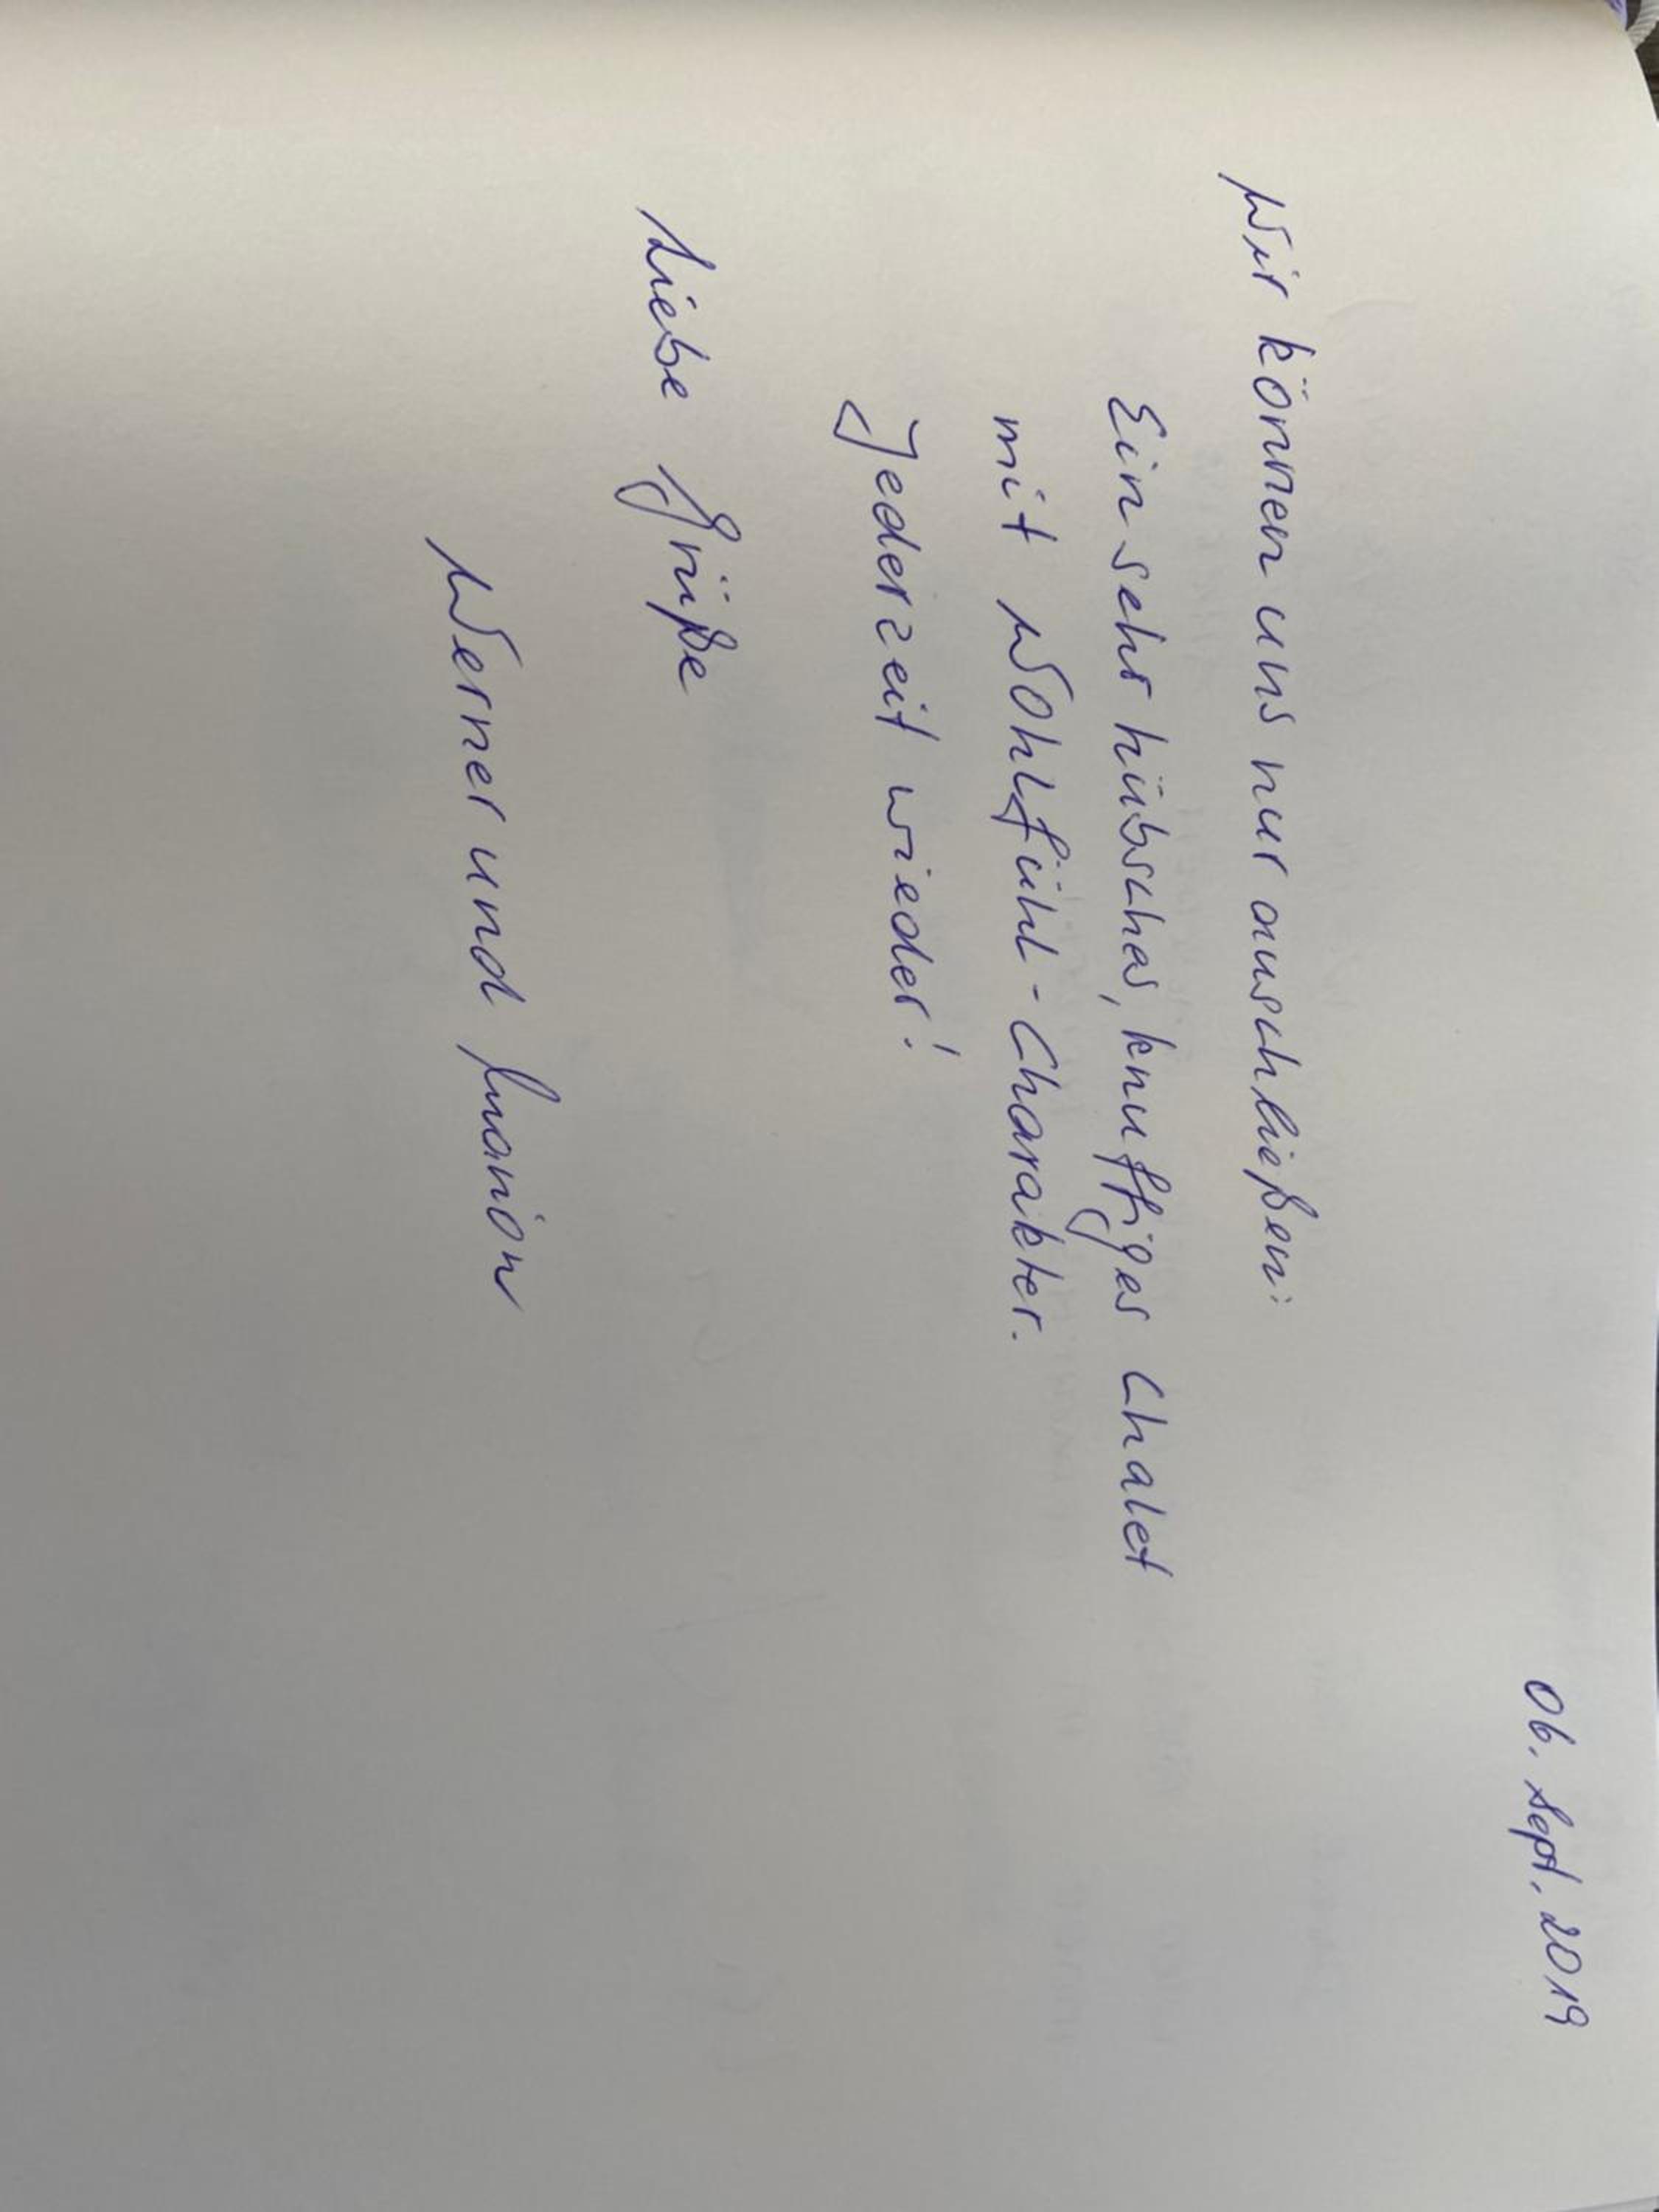 06. Sept. 2019
Wir können uns nur anschließen:
Ein sehr hübsches, knuffiges Chalet
mit Wohlfühl-Charakter.
Jederzeit wieder!
Liebe Grüße
Werner und Marion